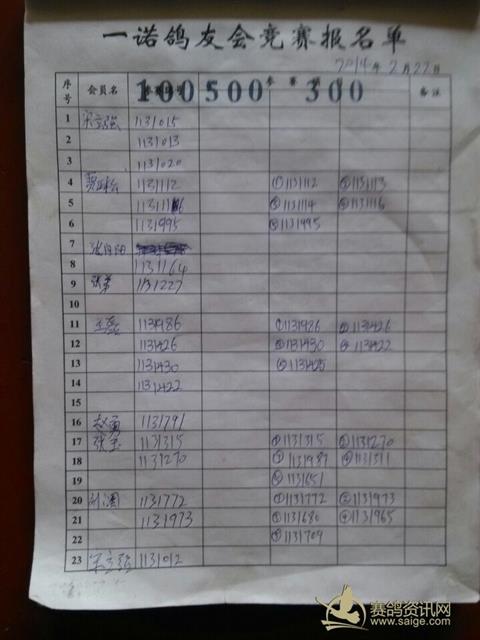 一诺鸽友会竞赛报名单
2014年2月22日
序号 会员名 100 500 300 备注
1 宋立强 1131015
2 1131013
3 1131020
4 1131112 ①1131112 ②1131113
5 ③1131114 ④1131116
6 1131995 ⑤1131995
7 沈自阳
8 1131164
9 张荣 1131227
10
11 王磊 1131986 ①1131986 ②1131426
12 1131426 ③1131430 ④1131422
13 1131430 ⑤1131425
14 1131422
15
16 赵勇 1131791
17 张宝 1131315 ①1131315 ②1131270
18 1131270 ③1131987 ④1131311
19 ⑤1131651
20 1131772 ①1131772 ②1131973
21 1131973 ③1131680 ④1131965
22 ⑤1131704
23 宋立强 1131012
赛鸽资讯网
www.saige.com